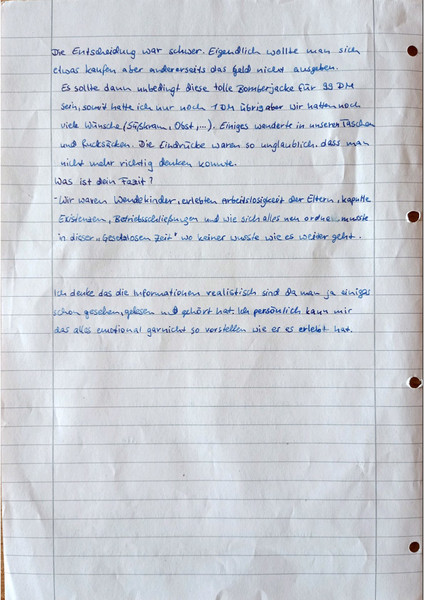 Die Entscheidung war schwer. Eigendlich wollte man sich
etwas kaufen aber andererseits das geld nicht ausgeben.
Es sollte dann unbedingt diese tolle Bomberjacke für 99 DM
sein, somit hatte ich nur noch 1 DM übrig aber wir hatten noch
viele Wünsche (Süßkram, Obst,...). Einiges wanderte in unseren Taschen
und Rucksäcken. Die Eindrücke waren so unglaublich, dass man
nicht mehr richtig denken konnte.
Was ist dein Fazit?
"Wir waren Wendekinder, erlebten Arbeitslosigkeit der Eltern, kaputte
Existenzen, Betriebsschließungen und wie sich alles neu ordnen musste
in dieser "Gesetzlosen Zeit" wo keiner wusste wie es weiter geht.
Ich denke das die Informationen realistisch sind da man ja einiges
schon gesehen, gelesen und gehört hat. Ich persönlich kann mir
das alles emotional garnicht so vorstellen wie er es erlebt hat.